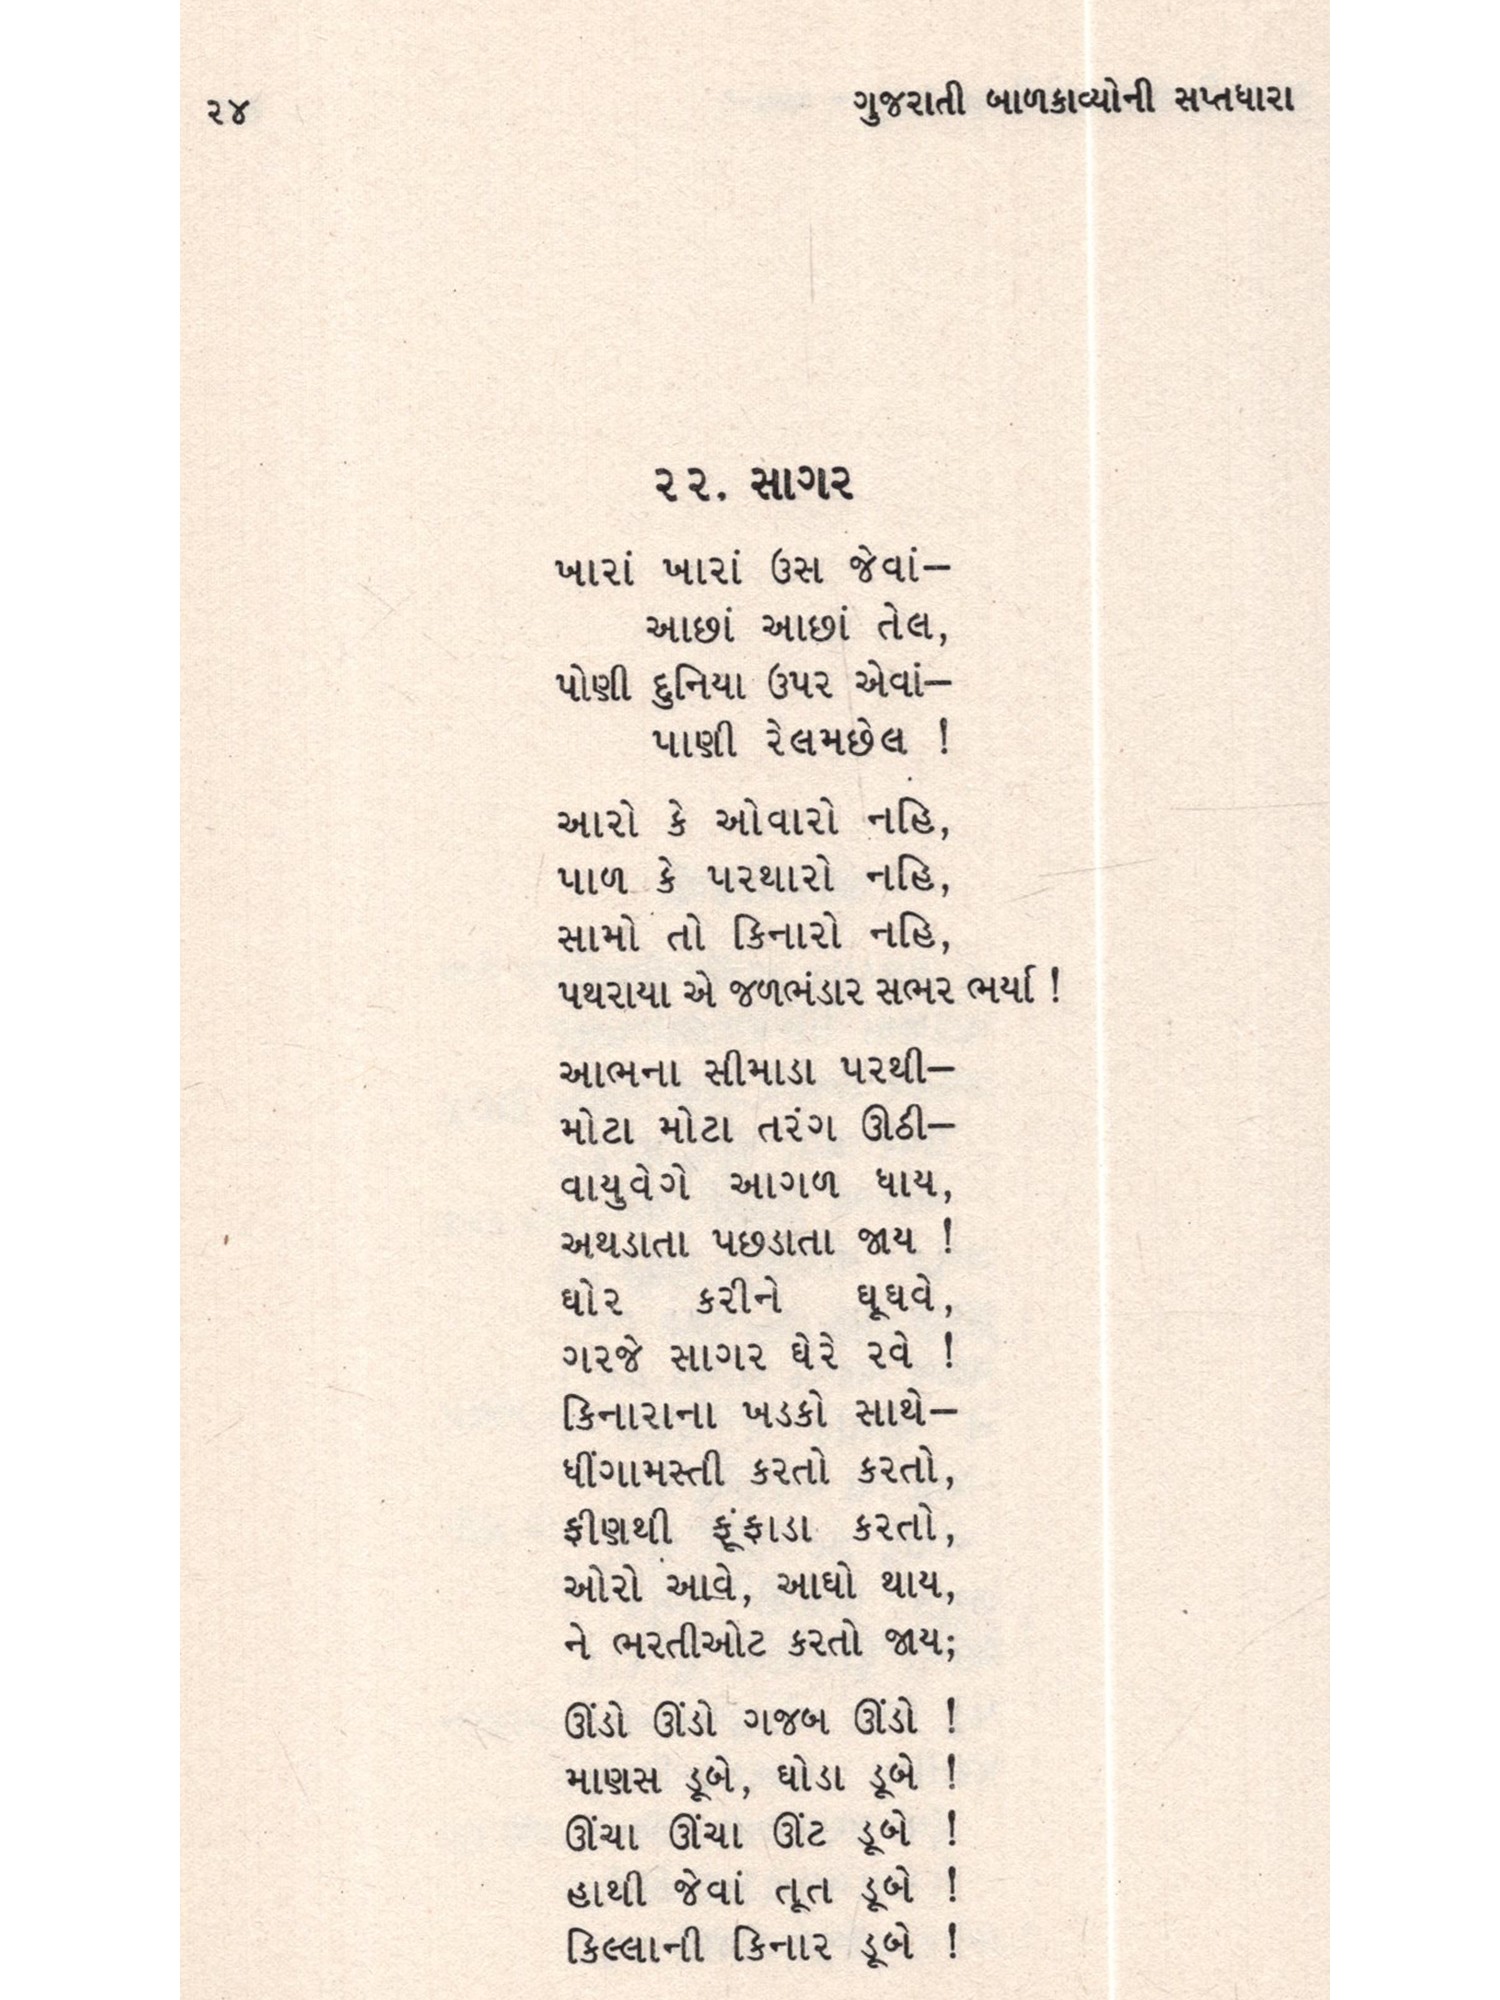 ૨૪ ગુજરાતી બાળકાવ્યોની સપ્તધારા
૨૨. સાગર
ખારાં ખારાં ઉસ જેવાં—
આછાં આછાં તેલ,
પોણી દુનિયા ઉપર એવાં—
પાણી રેલમછેલ !
આરો કે ઓવારો નહિ,
પાળ કે પરથારો નહિ,
સામો તો કિનારો નહિ,
પથરાયા એ જળભંડાર સભર ભર્યા !
આભના સીમાડા પરથી—
મોટા મોટા તરંગ ઊઠી—
વાયુવેગે આગળ ધાય,
અથડાતા પછડાતા જાય !
ઘોર કરીને ઘૂઘવે,
ગરજે સાગર ઘેરે રવે !
કિનારાના ખડકો સાથે—
ધીંગામસ્તી કરતો કરતો,
ફીણથી ફૂંફાડા કરતો,
ઓરો આવે, આઘો થાય,
ને ભરતીઓટ કરતો જાય;
ઊંડો ઊંડો ગજબ ઊંડો !
માણસ ડૂબે, ઘોડા ડૂબે !
ઊંચા ઊંચા ઊંટ ડૂબે !
હાથી જેવાં તૂત ડૂબે !
કિલ્લાની કિનાર ડૂબે !